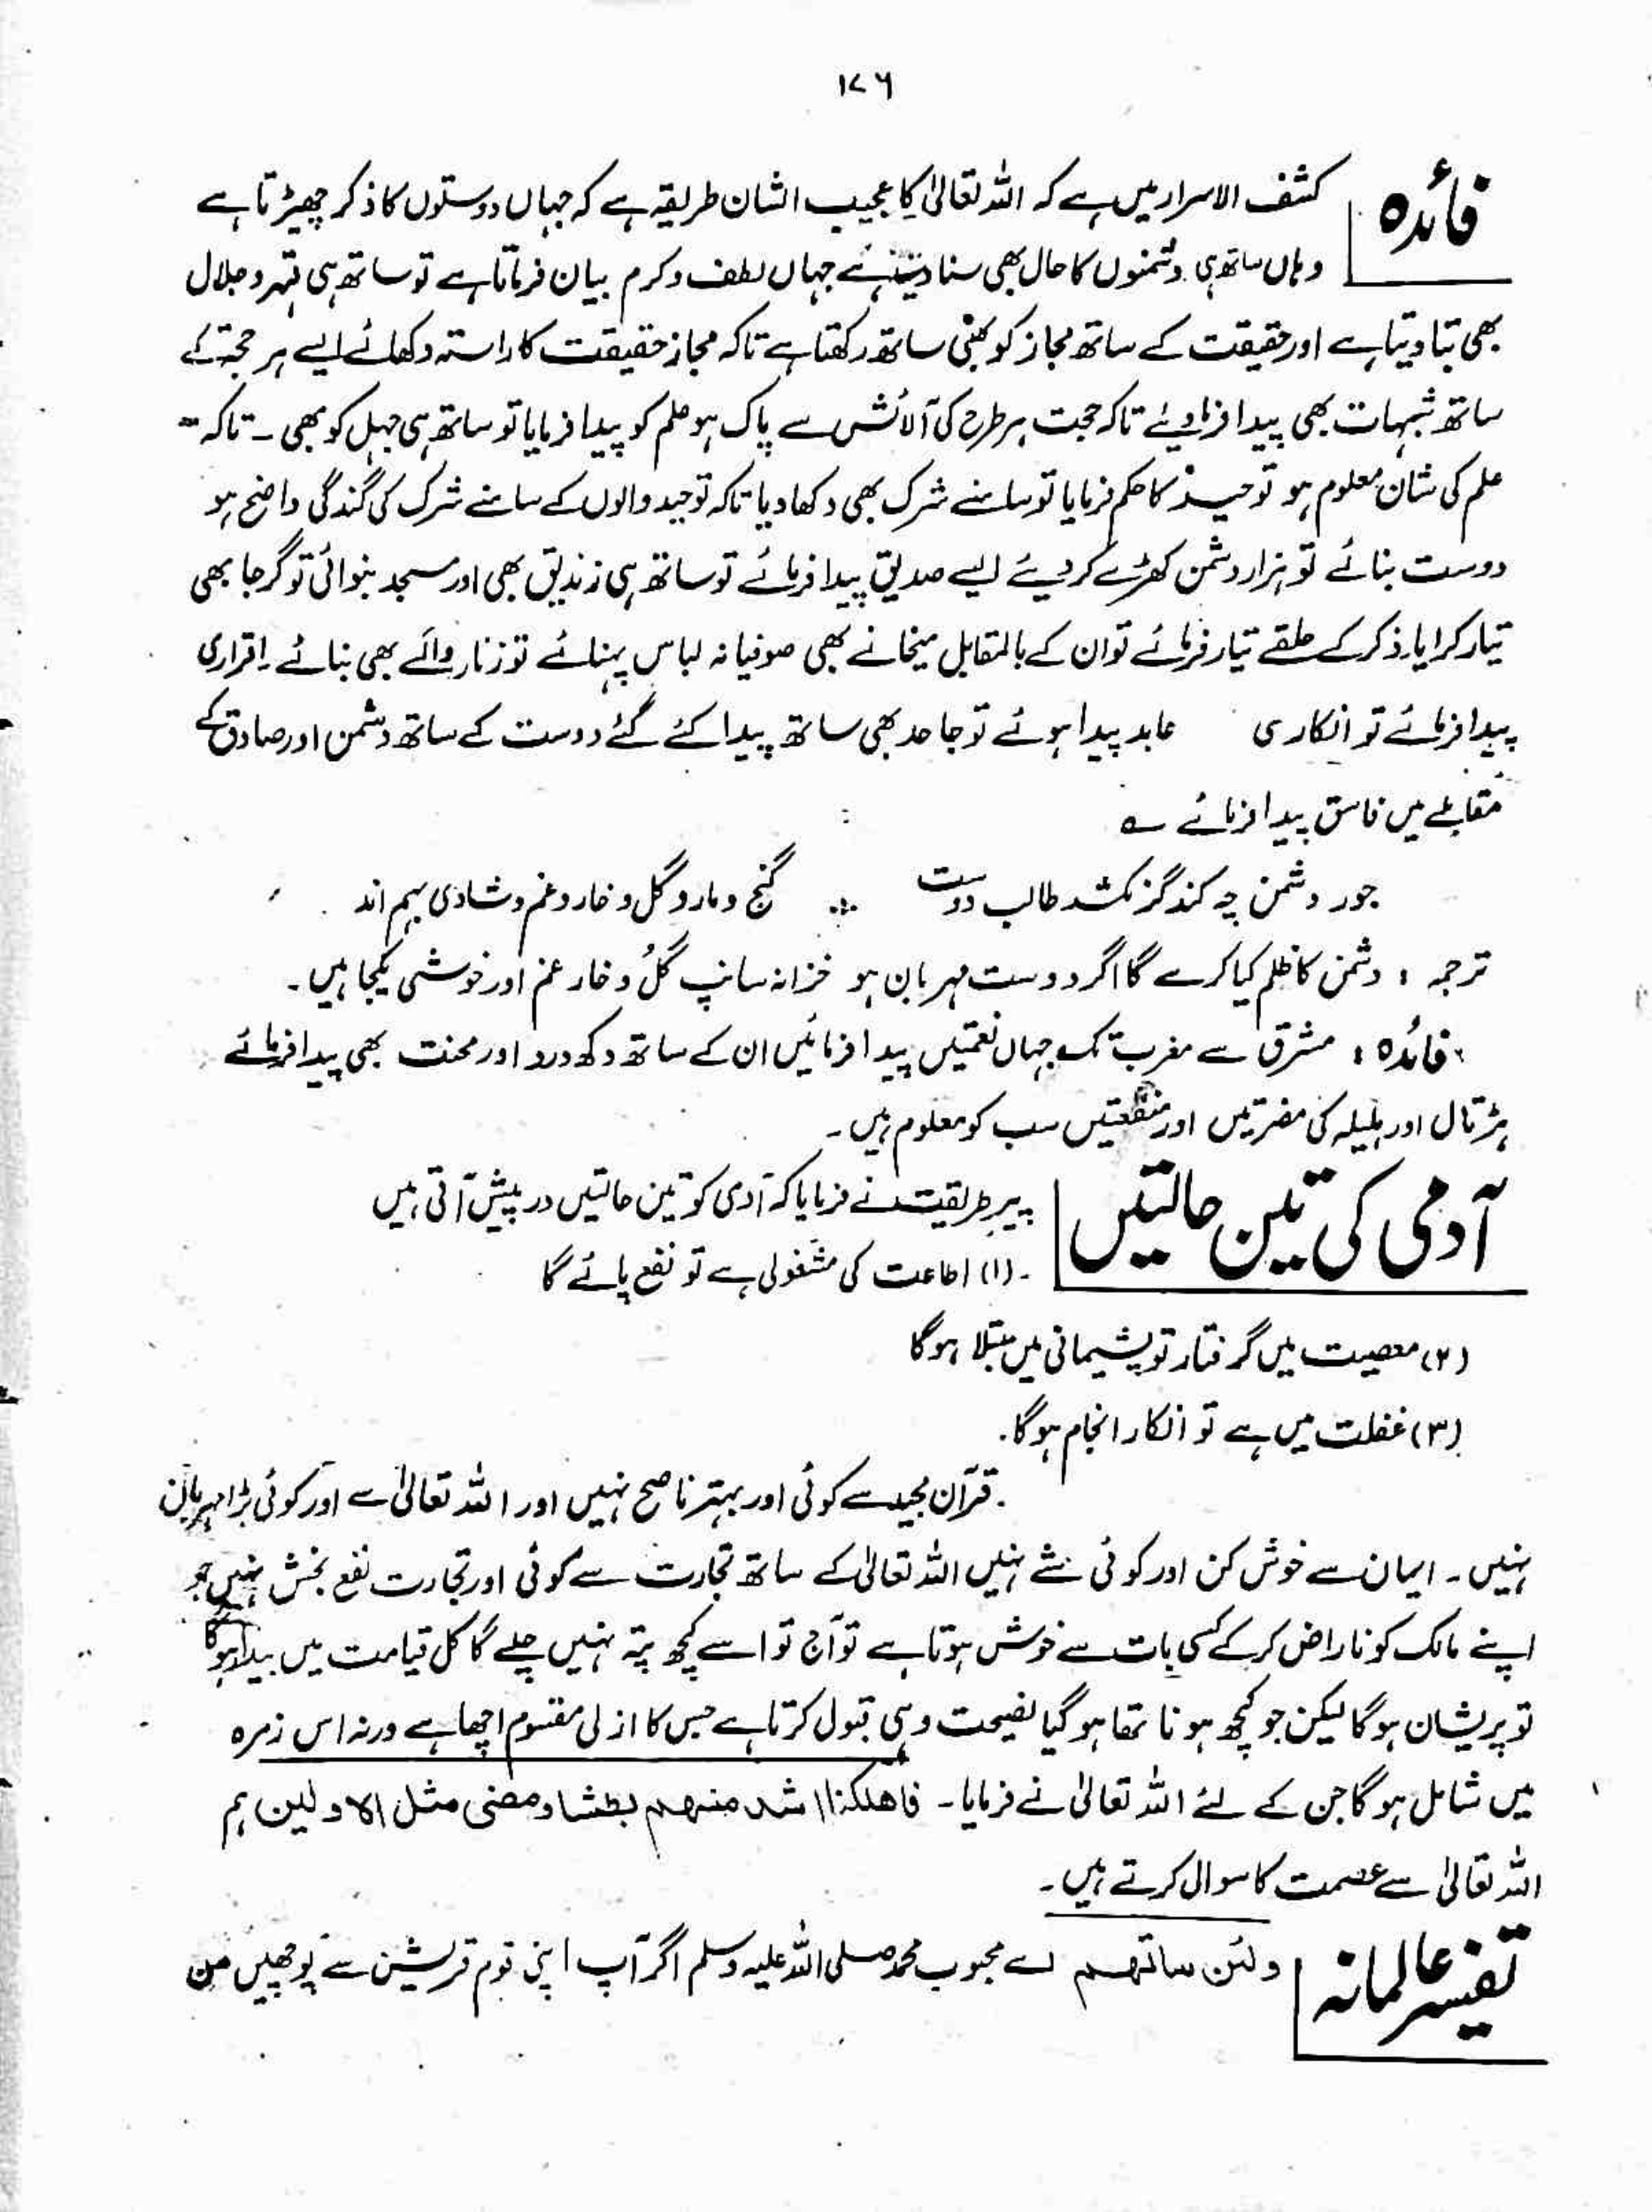 ۱۷۶
فائدہ
کشف الاسرار میں ہے کہ اللہ تعالیٰ کا عجیب الشان طریقہ ہے کہ جہاں دوستوں کا ذکر چھیڑتا ہے
وہاں ساتھ ہی دشمنوں کا حال بھی سنا دیتا ہے جہاں لطف و کرم بیان فرماتا ہے تو ساتھ ہی قہر و جلال
بھی بتا دیتا ہے اور حقیقت کے ساتھ مجاز کو بھی ساتھ رکھتا ہے تاکہ مجاز حقیقت کا راستہ دکھائے ایسے ہر حجۃ کے
ساتھ شبہات بھی پیدا فرما دیئے تاکہ حجت ہر طرح کی آلائش سے پاک ہو علم کو پیدا فرمایا تو ساتھ ہی جہل کو بھی ۔ تاکہ
علم کی شان معلوم ہو توحید کا حکم فرمایا تو سامنے شرک بھی دکھا دیا تاکہ توحید والوں کے سامنے شرک کی گندگی واضح ہو
دوست بنائے تو ہزار دشمن کھڑے کر دیئے ایسے صدیق پیدا فرمائے تو ساتھ ہی زندیق بھی اور مسجد بنوائی تو گرجا بھی
تیار کرایا ذکر کے حلقے تیار فرمائے تو ان کے بالمقابل میخانے بھی صوفیانہ لباس پہنائے تو زنار والے بھی بنائے اقراری
پیدا فرمائے تو انکاری عابد پیدا ہوئے تو جاحد بھی ساتھ پیدا کئے گئے دوست کے ساتھ دشمن اور صادق کے
مقابلے میں فاسق پیدا فرمائے ؎
جور دشمن چہ کند گر نکشد طالب دوست ؞ گنج و مار و گل و خار و غم و شادی بہم اند
ترجمہ : دشمن کا ظلم کیا کرے گا اگر دوست مہربان ہو خزانہ سانپ گُل و خار غم اور خوشی یکجا ہیں ۔
فائدہ : مشرق سے مغرب تک جہاں نعمتیں پیدا فرمائیں ان کے ساتھ دکھ درد اور محنت بھی پیدا فرمائے
ہڑتال اور ہلیلہ کی مضرتیں اور منفعتیں سب کو معلوم ہیں ۔
آدمی کی تین حالتیں
پیر طریقت نے فرمایا کہ آدمی کو تین حالتیں درپیش آتی ہیں
(۱) اطاعت کی مشغولی ہے تو نفع پائے گا
(۲) معصیت میں گرفتار تو پشیمانی میں مبتلا ہوگا
(۳) غفلت میں ہے تو انکار انجام ہوگا ۔
قرآن مجید سے کوئی اور بہتر ناصح نہیں اور اللہ تعالیٰ سے اور کوئی بڑا مہربان
نہیں ۔ ایمان سے خوش کن اور کوئی شے نہیں اللہ تعالیٰ کے ساتھ تجارت سے کوئی اور تجارت نفع بخش نہیں جو
اپنے مالک کو ناراض کر کے کسی بات سے خوش ہوتا ہے تو آج تو اسے کچھ پتہ نہیں چلے گا کل قیامت میں بیدار ہوگا
تو پریشان ہوگا لیکن جو کچھ ہونا تھا ہو گیا نصیحت وہی قبول کرتا ہے جس کا ازلی مقسوم اچھا ہے ورنہ اس زمرہ
میں شامل ہوگا جن کے لئے اللہ تعالیٰ نے فرمایا ۔ فاھلکنا اشد منہم بطشا و مضی مثل الاولین ہم
اللہ تعالیٰ سے عصمت کا سوال کرتے ہیں ۔
تفسیر عالمانہ
ولئن سالتھم اے محبوب محمد صلی اللہ علیہ وسلم اگر آپ اپنی قوم قریش سے پوچھیں من